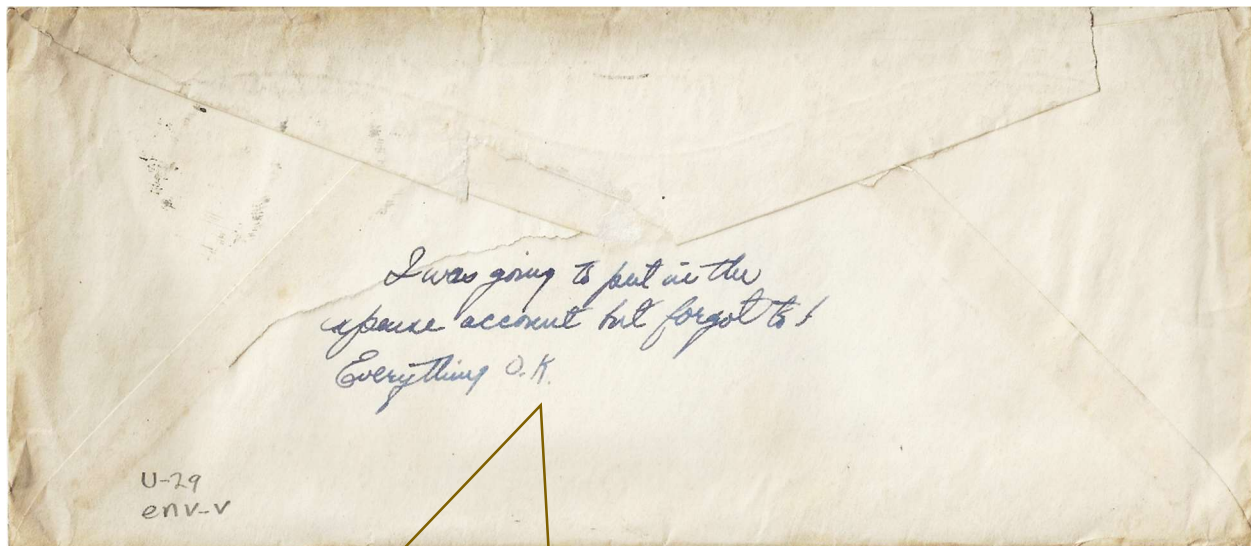 I was going to put in the
xpense account but forgot to!
Everything O.K.
U-29
env-v